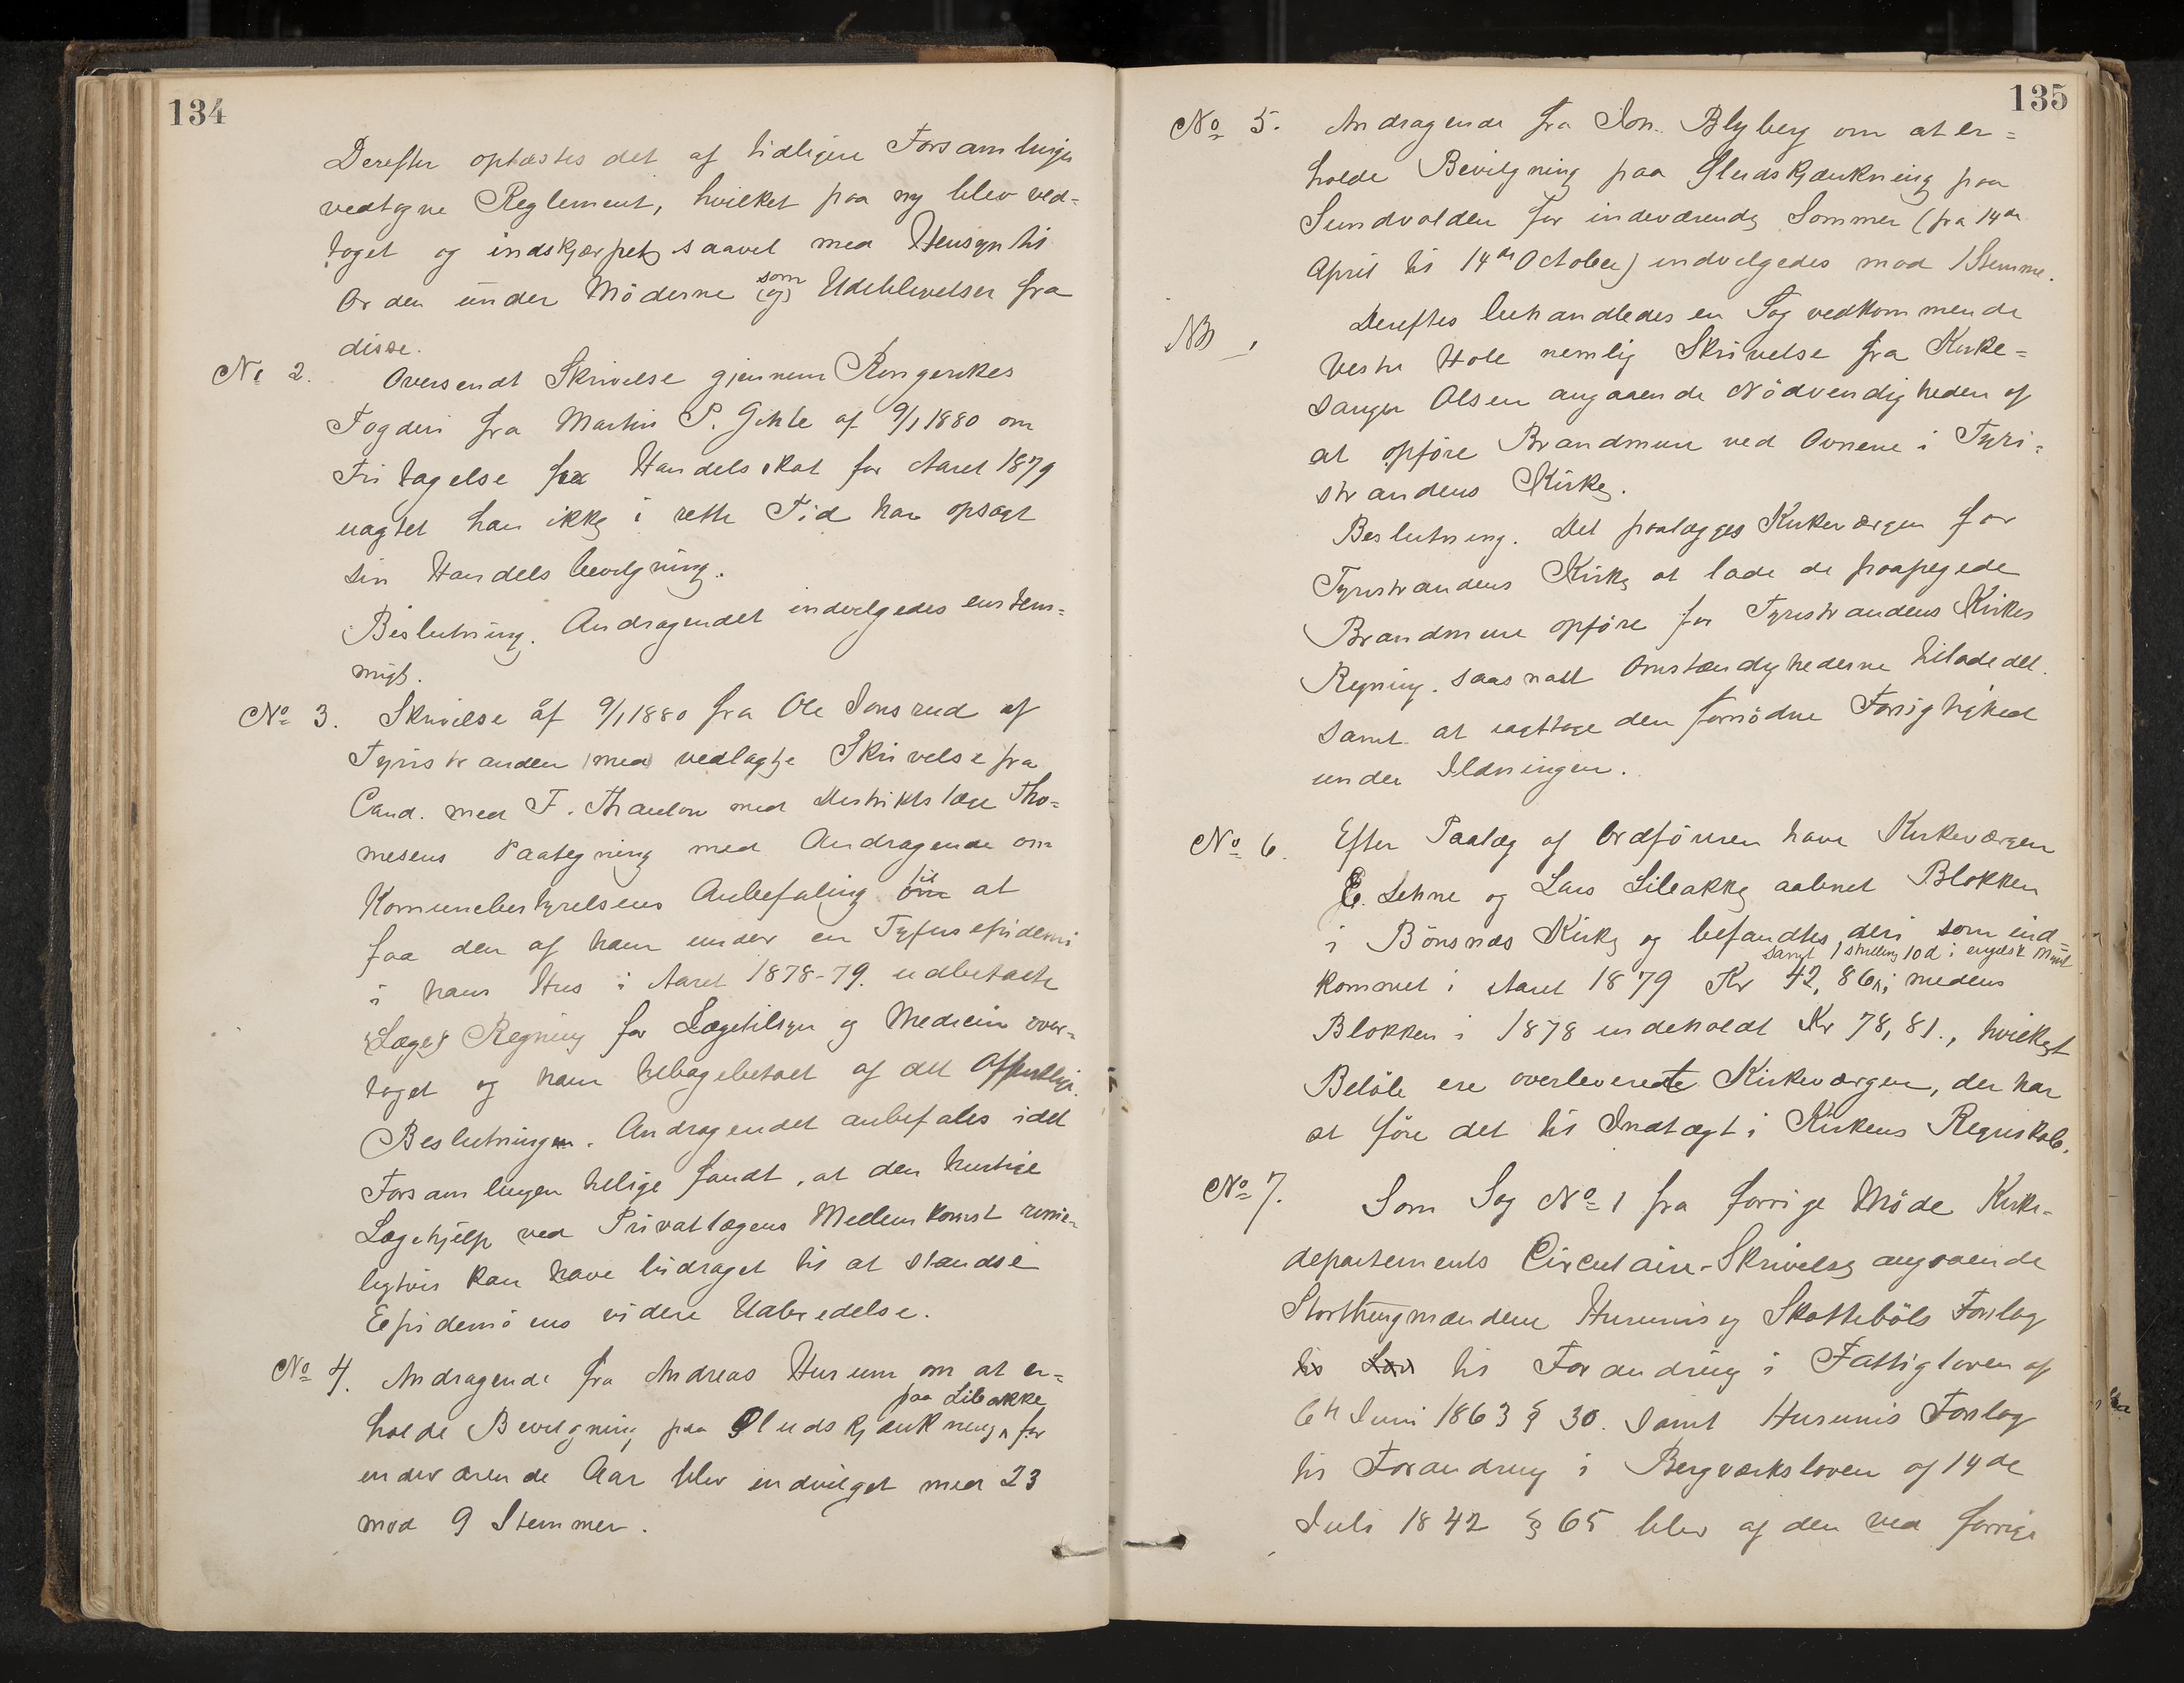 134
Derefter oplæstes det af tidligere Forsamlinger
vedtagne Reglement, hvilket paa ny blev ved=
taget og indskjærpet saavel med Hensyn til
Orden under Möderne (og) som Udeblivelser fra
disse.
No 2. Oversendt Skrivelse gjennem Ringerikes
Fogderi fra Martin P. Gihle af 9/1 1880 om
Fritagelse fra Handelsskat for Aaret 1879
uagtet han ikke i rette Tid har opsagt
sin Handelsbevilgning.
Beslutning. Andragendet indvilgedes enstem=
migt.
No 3. Skrivelse af 9/1 1880 fra Ole Sonsrud af
Tyristranden (med) vedlagte Skrivelse fra
Cand. med F. Thaulow med Distriktslæge Tho=
mesens Paategning med Andragende om
Komunebestyrelsens Anbefaling om til at
faa den af ham under en Tyfusepidemi
i hans Hus i Aaret 1878-79. udbetalte
(Læge) Regning for Lægetilsyn og Medicin over=
taget og ham tilbagebetalt af det Offentlige.
Beslutningen. Andragendet anbefales idet
Forsamlingen tillige fandt, at den hurtige
Lægehjælp ved Privatlægens Mellemkomst rime=
ligtvis kan have bidraget til at standse
Epidemiens videre Udbredelse.
No 4. Andragende fra Andreas Hurum om at er=
holde Bevilgning paa Øludskjænkning paa Libakke for
indeværende Aar blev indvilget med 23
mod 9 Stemmer.
135
No 5. Andragende fra Ion. Blyberg om at er=
holde Bevilgning paa Øludskjænkning paa
Sundvolden for indeværende Sommer (fra 14de
April til 14de October) indvilgedes mod 1 Stemme.
NB Derefter behandledes en Sag vedkommende
Vestre Hole nemlig Skrivelse fra Kirke=
sanger Olsen angaaende Nödvendigheden af
at opföre Brandmure ved Ovnene i Tyri=
strandens Kirke.
Beslutning. Det paalægges Kirkeværgen for
Tyristrandens Kirke at lade de paapegede
Brandmure opföre for Tyristrandens Kirkes
Regning. saasnart Omstændighederne tilade det.
samt at iagttage den fornödne Forsigtighed
under Ildningen.
No 6. Efter Paalæg af Ordföreren have Kirkeværgen
E. Lehne og Lars Libakke aabnet Blokken
i Bönsnæs Kirke og befandtes deri som ind=
kommet i Aaret 1879 Kr 42,86, samt 1 skilling 10 d i engelsk Mynt; medens
Blokken i 1878 indeholdt Kr 78,81., hvilket
Belöb ere overleverede Kirkeværgen, der har
at före det til Indtægt i Kirkens Regnskab.
No 7. Som Sag No 1 fra forrige Möde Kirke-
departements Circulaire-Skrivelse angaaende
Storthingmændene Hurums og Skatteböls Forslag
til Lov til Forandring i Fattigloven af
6te Juni 1863 § 30. samt Hurums Forslag
til Forandring i Bergværksloven af 14de
Juli 1842 § 65 blev af den ved forrige